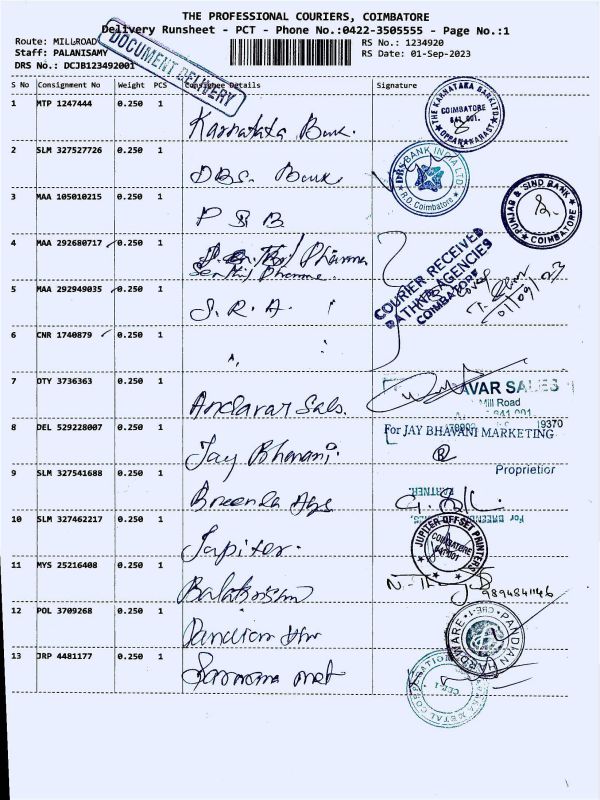 THE PROFESSIONAL COURIERS, COIMBATORE
Delivery Runsheet - PCT - Phone No.:0422-3505555 - Page No.:1
Route: MILLROAD
RS No.: 1234920
Staff: PALANISAMY
RS Date: 01-Sep-2023
DRS No.: DCJB123492001
DOCUMENT DELIVERY
S No Consignment No Weight PCS Consignee Details Signature
1 MTP 1247444 0.250 1 Karnataka Bank.
THE KARNATAKA BANK LTD
COIMBATORE
641 001.
2 SLM 327527726 0.250 1 DBS. Bank
DBS BANK INDIA LTD.
R.O. Coimbatore
3 MAA 105010215 0.250 1 P S B
PUNJAB & SIND BANK
COIMBATORE
4 MAA 292680717 0.250 1 Pharma
Senthil Pharma
COURIER RECEIVED
RATHNA AGENCIES
COIMBATORE
5 MAA 292949035 0.250 1 S. R. A.
01/09/
6 CNR 1740879 0.250 1 "
7 DTY 3736363 0.250 1 Andavar Sales.
AVAR SALES
Mill Road
641 001
8 DEL 529228007 0.250 1 Jay Bhavani.
19370
For JAY BHAVANI MARKETING
Proprietor
9 SLM 327541688 0.250 1 Breenda Ags
PARTNER.
For BREENDA
10 SLM 327462217 0.250 1 Jupiter.
JUPITER OFFSET PRINTERS
COIMBATORE
641 001
11 MYS 25216408 0.250 1 Balakrishna
9894841146
12 POL 3709268 0.250 1 Pandian Hw
PANDIAN HARDWARE
CBE-1
13 JRP 4481177 0.250 1 met
METAL CORPORATION
CBE-1